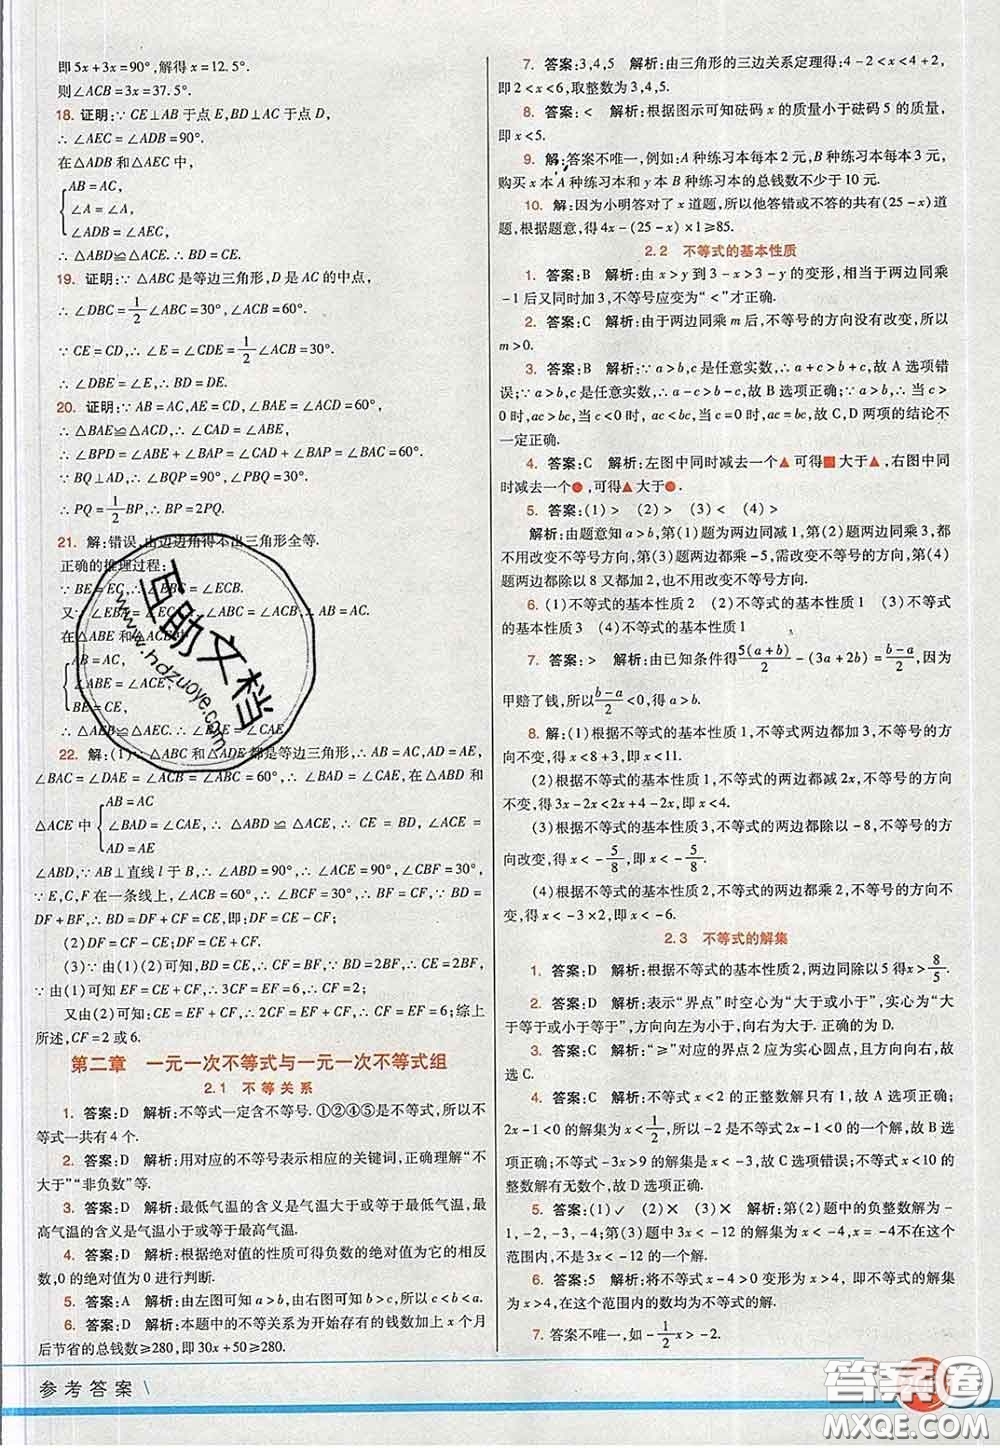 即5x+3x=90°,解得x=12.5°.
则∠ACB=3x=37.5°.
18. 证明:∵CE⊥AB于点E,BD⊥AC于点D,
∴∠AEC=∠ADB=90°.
在△ADB和△AEC中,
AB=AC,
∠A=∠A,
∠ADB=∠AEC,
∴△ABD≌△ACE.∴BD=CE.
19. 证明:∵△ABC是等边三角形,D是AC的中点,
∴∠DBC=1/2∠ABC=30°,∠ACB=60°.
∵CE=CD,∴∠E=∠CDE=1/2∠ACB=30°.
∴∠DBE=∠E,∴BD=DE.
20. 证明:∵AB=AC,AE=CD,∠BAE=∠ACD=60°,
∴△BAE≌△ACD,∴∠CAD=∠ABE,
∴∠BPD=∠ABE+∠BAP=∠CAD+∠BAP=60°.
∵BQ⊥AD,∴∠BQP=90°,∠PBQ=30°.
∴PQ=1/2BP,∴BP=2PQ.
21. 解:错误,由边边角得不出三角形全等.
正确的推理过程:
∵BE=EC,∴∠EBC=∠ECB.
又∵∠EBA=∠ECA,∴∠ABC=∠ACB,∴AB=AC.
在△ABE和△ACE中,
AB=AC,
∠ABE=∠ACE,
BE=CE,
∴△AEB≌△AEC.∴∠BAE=∠CAE.
22. 解:(1)∵△ABC和△ADE都是等边三角形,∴AC=AB,AD=AE,
∠BAC=∠DAE=∠ACB=∠ABC=60°,∴∠BAD=∠CAE,在△ABD和
△ACE中
AB=AC
∠BAD=∠CAE,∴△ABD≌△ACE,∴CE=BD,∠ACE=
AD=AE
∠ABD,∵AB⊥直线l于B,∴∠ABD=90°,∴∠ACE=90°,∠CBF=30°,
∵E,C,F在一条线上,∴∠ACB=60°,∴∠BCF=30°,∴CF=BF,∵BD=
DF+BF,∴BD=DF+CF,∴BD=DF+CF=CE,即:DF=CE-CF;
(2)DF=CF-CE;DF=CE+CF;
(3)∵由(1)可知,BD=CE,∴CE=BF+BD,∵BD=2BF,∴CE=2CF,
∵由(1)可知:CF=BF,∴CE=3CF,∵CE=6,∴CF=2;
又由(2)可知:CE=CF,∴2CF=CF+EF=CF+6,∴CF=6;综上
所述,CF=2或6.
第二章 一元一次不等式与一元一次不等式组
2.1 不等关系
1. 答案:D 解析:不等式一定含不等号.①②④⑤是不等式,所以不
等式一共有4个.
2. 答案:D 解析:用对应的不等号表示相应的关键词,正确理解“不
大于”“非负数”等.
3. 答案:D 解析:最低气温的含义是气温大于或等于最低气温,最
高气温的含义是气温小于或等于最高气温.
4. 答案:D 解析:根据绝对值的性质可得负数的绝对值为它的相反
数,0的绝对值为0进行判断.
5. 答案:A 解析:由左图可知a>b,由右图可知b>c,所以c<b<a.
6. 答案:D 解析:本题中的不等关系为开始存有的钱数加上x个月
后节省的总钱数≥280,即30x+50≥280.
7. 答案:3,4,5 解析:由三角形的三边关系定理得:4-2<x<4+2,
即2<x<6,取整数为3,4,5.
8. 答案:< 解析:根据图示可知砝码x的质量小于砝码5的质量,
即x<5.
9. 解:答案不唯一,例如:A种练习本每本2元,B种练习本每本3元,
购买x本A种练习本和y本B种练习本的总钱数不少于10元.
10. 解:因为小明答对了x道题,所以他答错或不答的共有(25-x)道
题,根据题意,得4x-(25-x)×1≥85.
2.2 不等式的基本性质
1. 答案:B 解析:由x>y到3-x>3-y的变形,相当于两边同乘
-1后又同时加3,不等号应变为“<”才正确.
2. 答案:C 解析:由于两边同乘m后,不等号的方向没有改变,所以
m>0.
3. 答案:B 解析:∵a>b,c是任意实数,∴a+c>b+c,故A选项错
误;∵a>b,c是任意实数,∴a-c>b-c,故B选项正确;∵a>b,∴当c>
0时,ac>bc,当c<0时,ac<bc,当c=0时,ac=bc,故C,D两项的结论不
一定正确.
4. 答案:C 解析:左图中同时减去一个▲可得■大于▲,右图中同
时减去一个●,可得▲大于●.
5. 答案:(1)> (2)> (3)< (4)>
解析:由题意知a>b,第(1)题为两边同减1,第(2)题两边同乘3,都
不用改变不等号方向,第(3)题两边都乘-5,需改变不等号方向,第(4)
题两边都除以8又都加2,不用改变不等号方向.
6. (1)不等式的基本性质2 (2)不等式的基本性质1 (3)不等式
的基本性质3 (4)不等式的基本性质1
7. 答案:> 解析:由已知条件得5(a+b)/2-(3a+2b)=(b-a)/2,因为
甲赔了钱,所以(b-a)/2<0,得a>b.
8. 解:(1)根据不等式的基本性质1,不等式的两边都加3,不等号的方向不变,
得x<8+3,即x<11.
(2)根据不等式的基本性质1,不等式的两边都减2x,不等号的方向
不变,得3x-2x<2x+4-2x,即x<4.
(3)根据不等式的基本性质3,不等式的两边都除以-8,不等号的方
向改变,得x<-5/8,即x<-5/8.
(4)根据不等式的基本性质2,不等式的两边都乘2,不等号的方向不
变,得x<-3×2,即x<-6.
2.3 不等式的解集
1. 答案:D 解析:根据不等式的基本性质2,两边同除以5得x>8/5.
2. 答案:D 解析:表示“界点”时空心为“大于或小于”,实心为“大
于等于或小于等于”,方向向左为小于,向右为大于.正确的为D.
3. 答案:C 解析:“≥”对应的界点2应为实心圆点,且方向向右,故
选C.
4. 答案:C 解析:不等式x<2的正整数解只有1,故A选项正确;
2x-1<0的解集为x<1/2,所以-2是不等式2x-1<0的一个解,故B选
项正确;不等式-3x>9的解集是x<-3,故C选项错误;不等式x<10的
整数解有无数个,故D选项正确.故选C.
5. 答案:(1)✓ (2)✕ (3)✕ 解析:第(2)题中的负整数解为-
1,-2,-3,-4;第(3)题中3x<-12的解集为x<-4,x=-4不在这个
范围内,不是3x<-12的一个解.
6. 答案:5 解析:将不等式x-4>0变形为x>4,即不等式的解集
为x>4,在这个范围内的数均为不等式的解.
7. 答案不唯一,如-1/2x>-2.
参考答案
互助文档
www.hdzuoye.com
答案圈
MXQE.COM